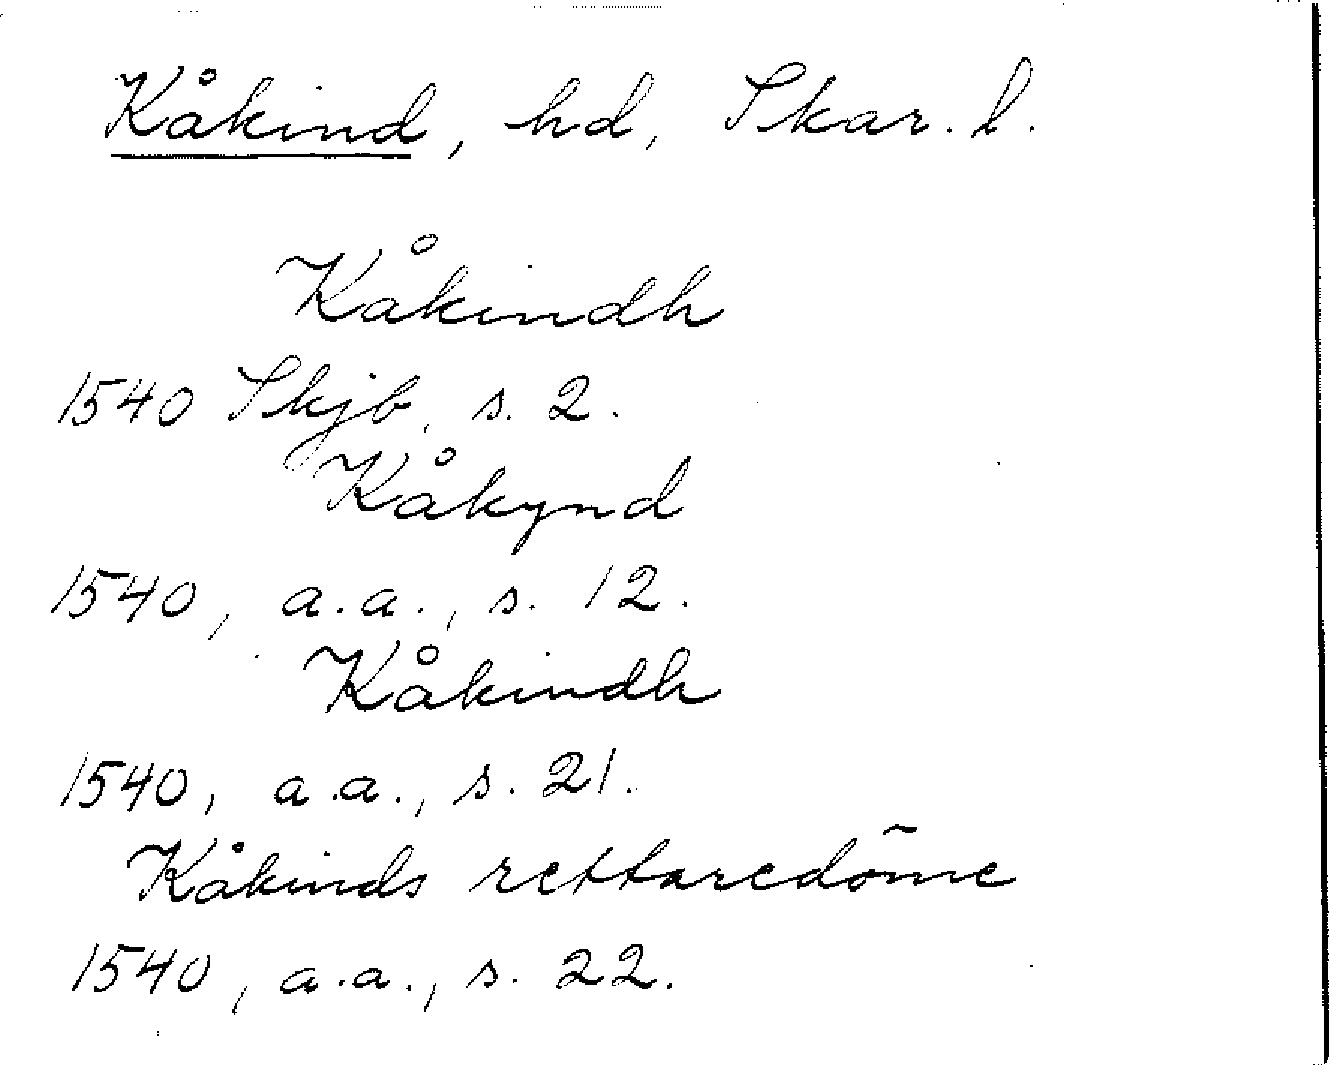 Kåkind, hd, Skar. l.
Kåkindh
1540 Skjb, s. 2.
Kåkynd
1540, a.a., s. 12.
Kåkindh
1540, a.a., s. 21.
Kåkinds rettaredöme
1540, a.a., s. 22.